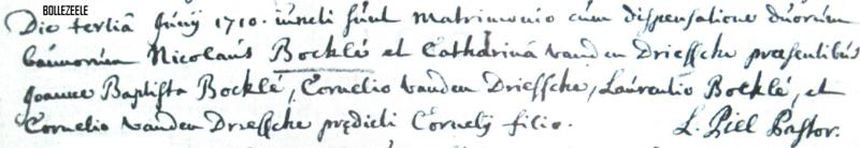 BOLLEZEELE
Die tertiâ Junÿ 1710. iuncti sunt matrimonio cum dispensatione duorum
bannorum Nicolaus Bocklé et Catharina vanden Driessche præsentibus
Joanne Baptista Bocklé, Cornelio vanden Driessche, Laurentio Bocklé, et
Cornelio vanden Driessche prędicti Cornelÿ filio. L. Piel Pastor.